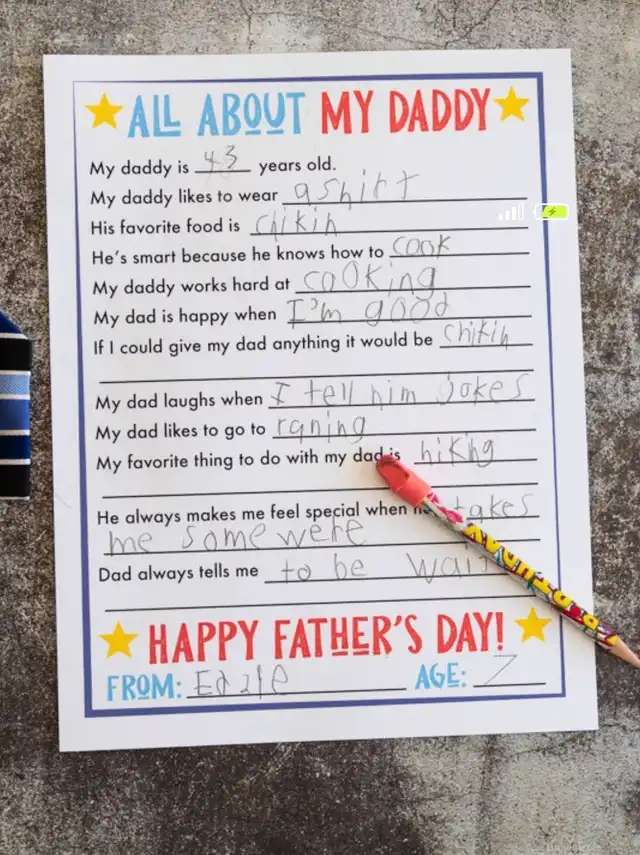 ALL ABOUT MY DADDY
My daddy is 43 years old.
My daddy likes to wear a shirt
His favorite food is chikin
He's smart because he knows how to cook
My daddy works hard at cooking
My dad is happy when I'm good
If I could give my dad anything it would be chikin
My dad laughs when I tell him jokes
My dad likes to go to raning
My favorite thing to do with my dad is hiking
He always makes me feel special when takes
me some were
Dad always tells me to be
HAPPY FATHER'S DAY!
FROM:
AGE: 7